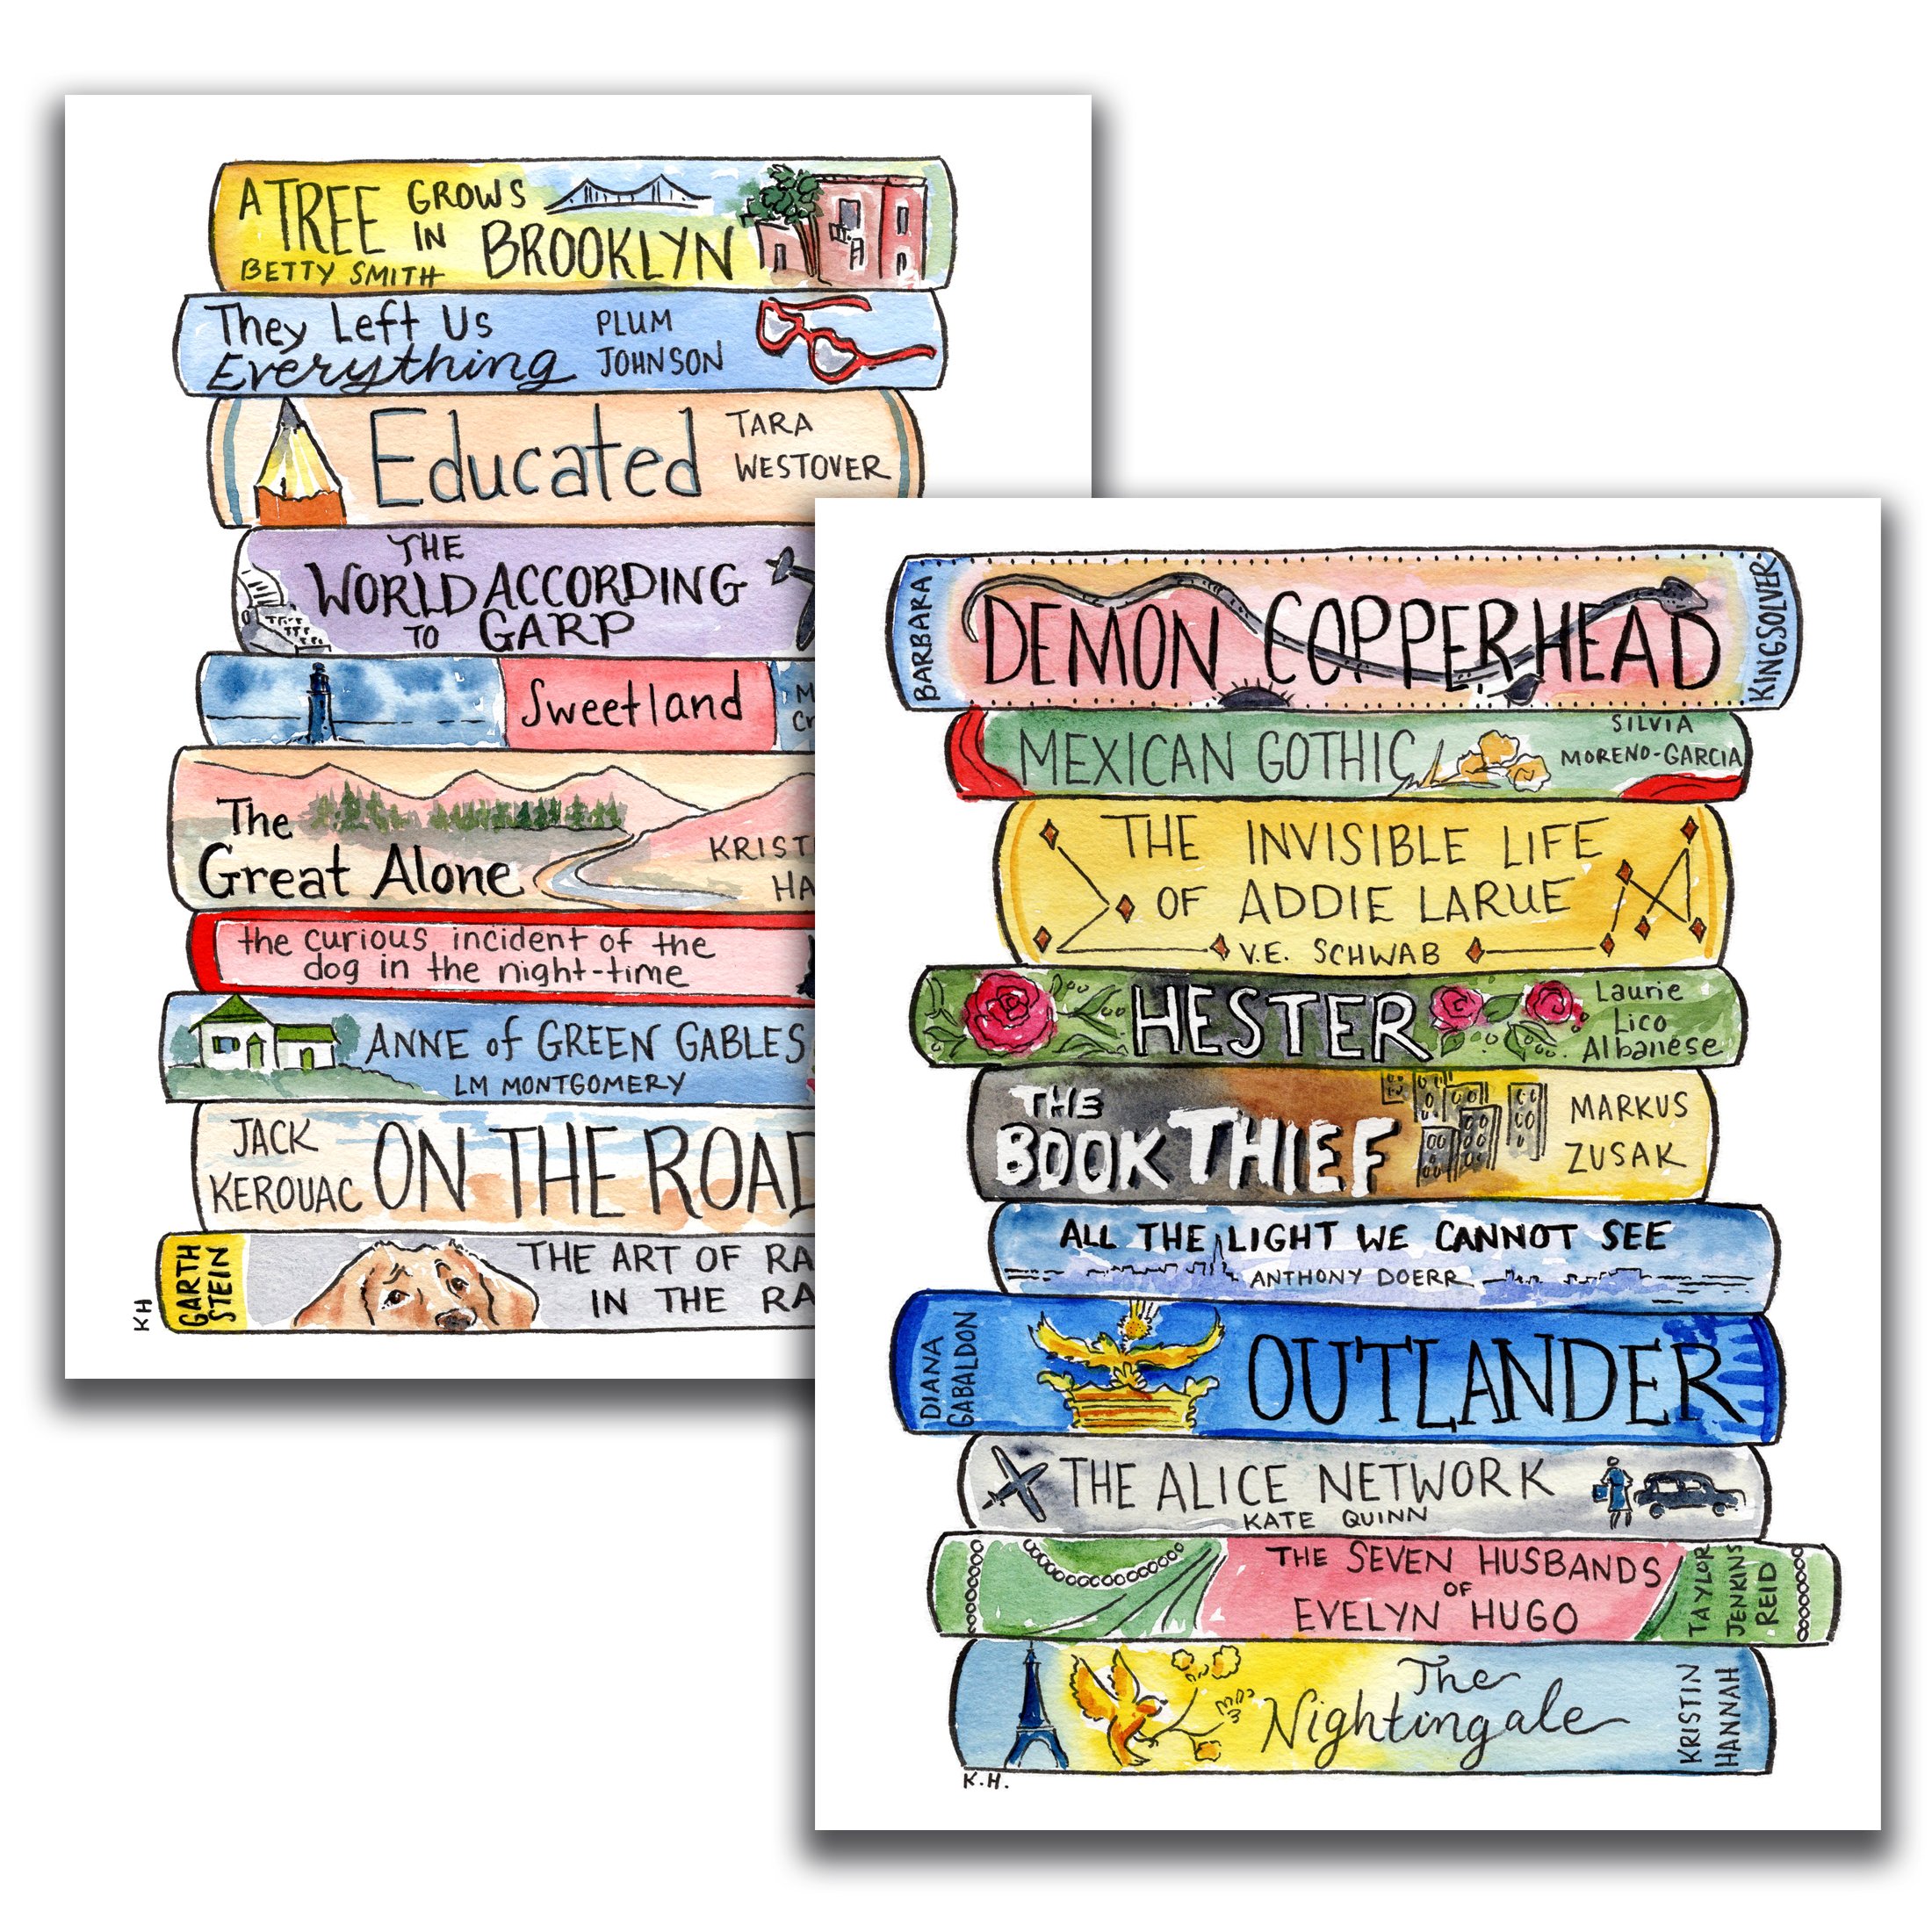 A TREE GROWS
IN BROOKLYN
BETTY SMITH
They Left Us
Everything
PLUM
JOHNSON
Educated
TARA
WESTOVER
THE
WORLD ACCORDING
TO GARP
Sweetland
The
Great Alone
the curious incident of the
dog in the night-time
ANNE of GREEN GABLES
LM MONTGOMERY
JACK
KEROUAC
ON THE ROAD
GARTH
STEIN
THE ART OF RA
IN THE RA
KH
BARBARA
DEMON COPPERHEAD
KINGSOLVER
MEXICAN GOTHIC
SILVIA
MORENO-GARCIA
THE INVISIBLE LIFE
OF ADDIE LARUE
V.E. SCHWAB
HESTER
Laurie
Lico
Albanese
THE
BOOK THIEF
MARKUS
ZUSAK
ALL THE LIGHT WE CANNOT SEE
ANTHONY DOERR
DIANA
GABALDON
OUTLANDER
THE ALICE NETWORK
KATE QUINN
THE SEVEN HUSBANDS
OF
EVELYN HUGO
TAYLOR
JENKINS
REID
The
Nightingale
KRISTIN
HANNAH
K.H.